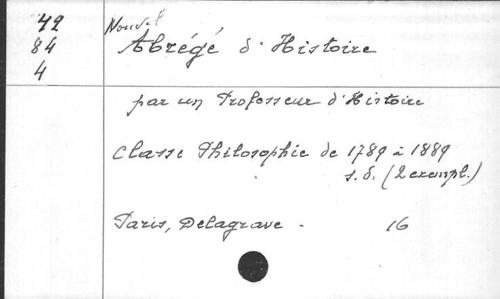 42
84
4
Nouvel
Abrégé d'Histoire
par un Professeur d'Histoire
Classe Philosophie de 1789 à 1889
s.d. (2 exempl.)
Paris, Delagrave - 16